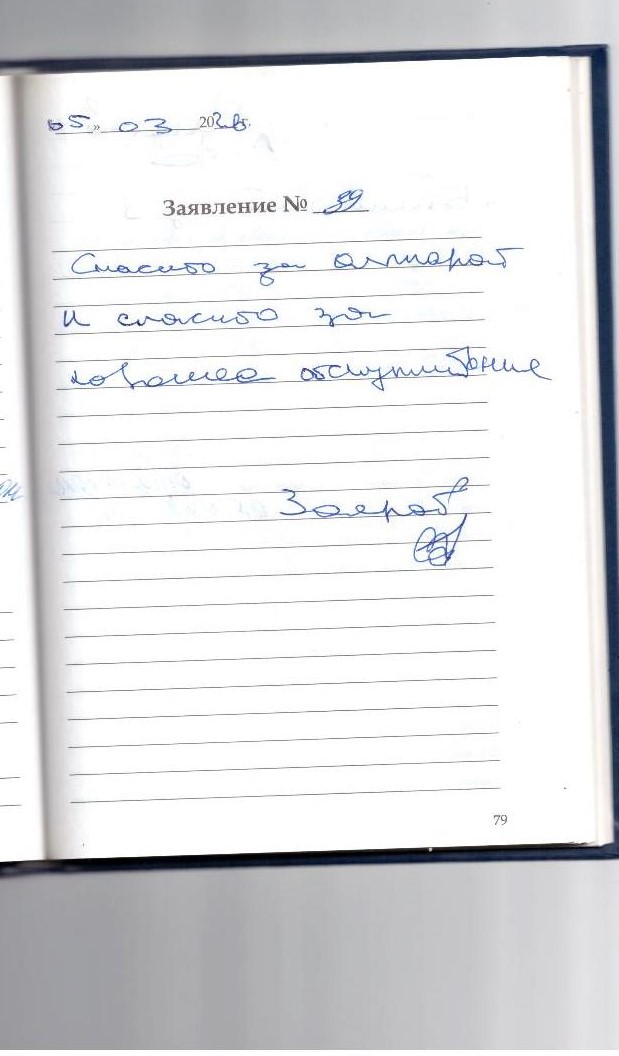 05» 03 2026г.
Заявление № 39
Спасибо за аппарат
и спасибо за
хорошее обслуживание
79